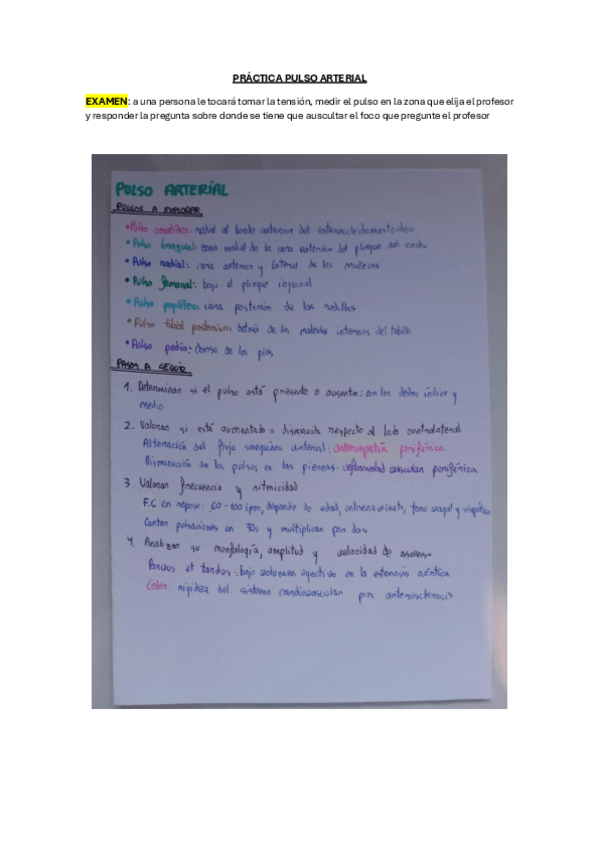 PRÁCTICA PULSO ARTERIAL
EXAMEN: a una persona le tocará tomar la tensión, medir el pulso en la zona que elija el profesor
y responder la pregunta sobre donde se tiene que auscultar el foco que pregunte el profesor
PULSO ARTERIAL
PULSOS A EXPLORAR
• Pulso carotídeo: medial al borde anterior del esternocleidomastoideo
• Pulso braquial: zona medial de la cara anterior del pliegue del codo
• Pulso radial: cara anterior y lateral de las muñecas
• Pulso femoral: bajo el pliegue inguinal
• Pulso poplíteo: cara posterior de las rodillas
• Pulso tibial posterior: detrás de los maleolos internos del tobillo
• Pulso pedio: dorso de los pies
PASOS A SEGUIR
1. Determinar si el pulso está presente o ausente: con los dedos índice y
medio
2. Valorar si está aumentado o disminuido respecto al lado contralateral
Alteración del flujo sanguíneo arterial: arteriopatía periférica
Disminución de los pulsos en las piernas: enfermedad vascular periférica
3 Valorar frecuencia y ritmicidad
F.C en reposo: 60-100 lpm, depende de edad, entrenamiento, tono vagal y simpático
Contar pulsaciones en 30s y multiplicar por dos
4. Analizar su morfología, amplitud y velocidad de ascenso
Parvus et tardus: bajo volumen eyectivo en la estenosis aórtica
Celer: rigidez del sistema cardiovascular por aterosclerosis